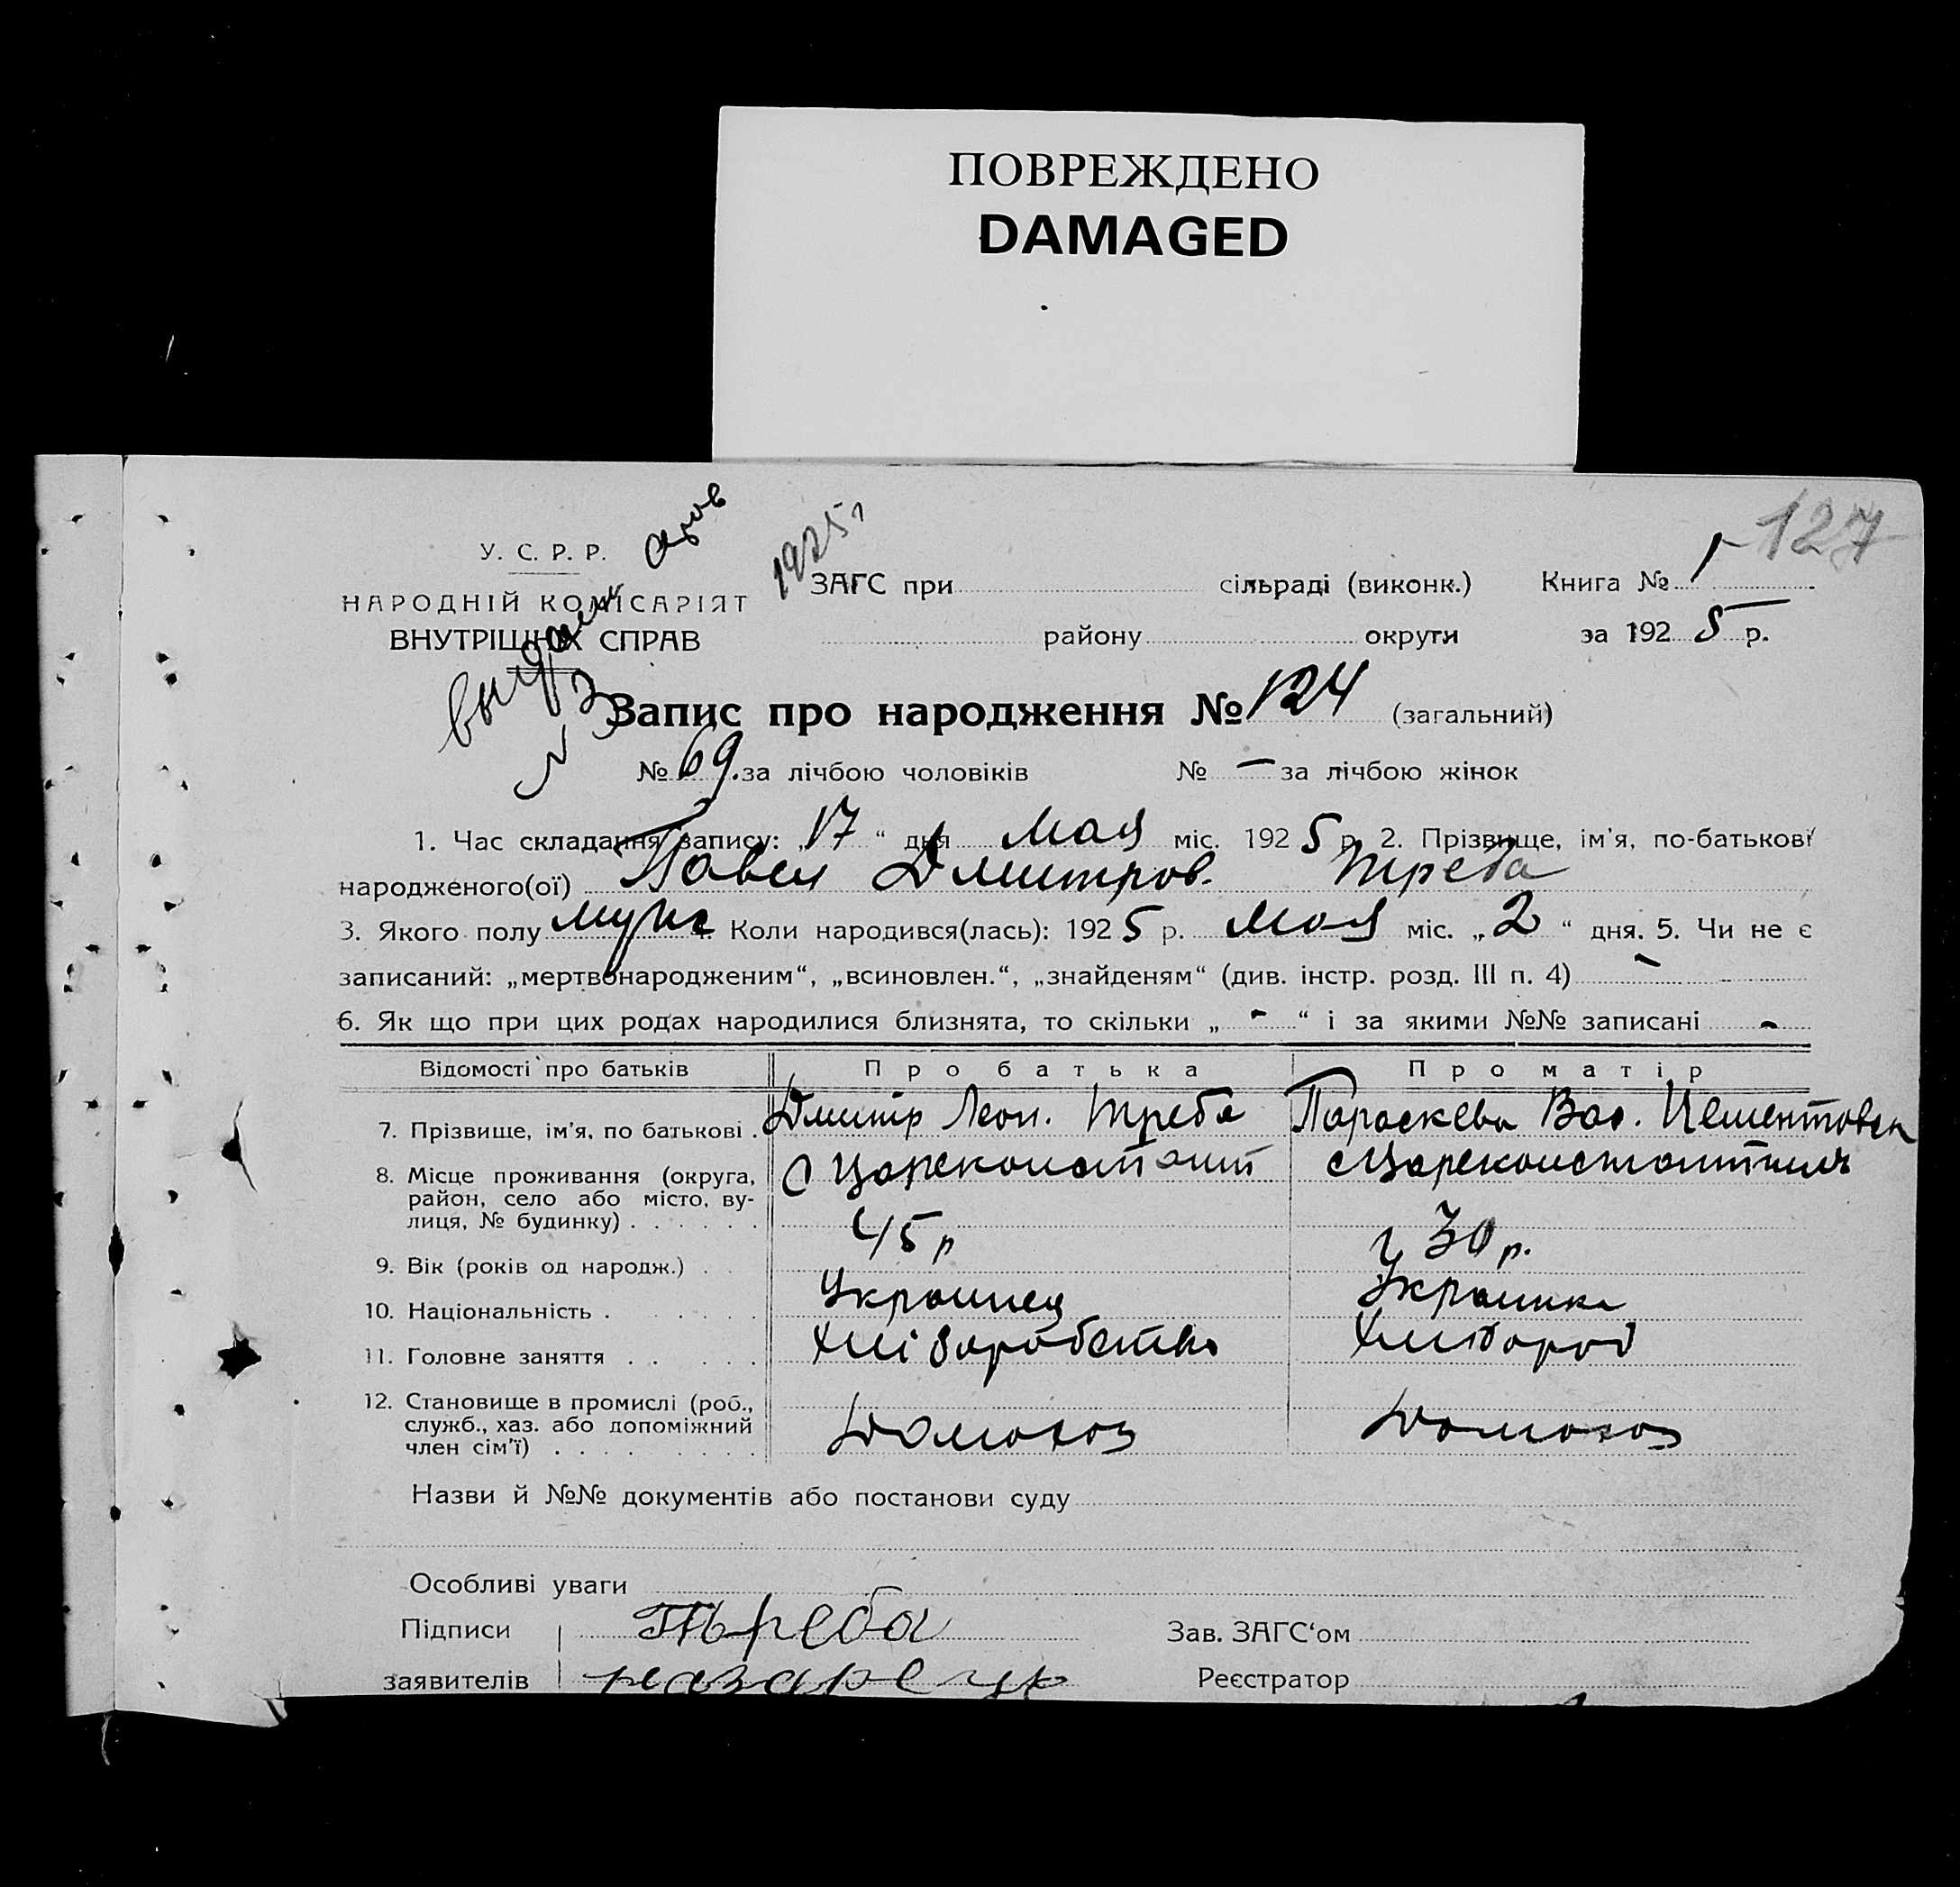 ПОВРЕЖДЕНО
DAMAGED
127
У. С. Р. Р.
НАРОДНІЙ КОМІСАРІЯТ
ВНУТРІШНІХ СПРАВ
1925
ЗАГС при сільраді (виконк.) Книга № 1
району округи за 1925 р.
Запис про народження № 124 (загальний)
№ 69. за лічбою чоловіків № — за лічбою жінок
1. Час складання запису: „17“ дня Мая міс. 1925 р. 2. Прізвище, ім'я, по-батькові
народженого(ої) Павел Дмитров. Треба
3. Якого полу муж 4. Коли народився(лась): 1925 р. Мая міс. „2“ дня. 5. Чи не є
записаний: „мертвонародженим“, „всиновлен.“, „знайденям“ (див. інстр. розд. III п. 4) -
6. Як що при цих родах народилися близнята, то скільки „ - “ і за якими №№ записані -
Відомості про батьків Про батька Про матір
7. Прізвище, ім'я, по батькові . Дмитр Леон. Треба Параскева Вас.
8. Місце проживання (округа, с Цареконстант с Цареконстантин
район, село або місто, ву-
лиця, № будинку) . . . . . .
9. Вік (років од народж.) . 45 р 30 р.
10. Національність . . . . . Украинец Украинка
11. Головне заняття . . . . . Хліборобство Хлібороб
12. Становище в промислі (роб., Домохоз Домохоз
служб., хаз. або допоміжний
член сім'ї) . . . . . . . .
Назви й №№ документів або постанови суду
Особливі уваги
Підписи Треба Зав. ЗАГС‘ом
заявителів Реєстратор